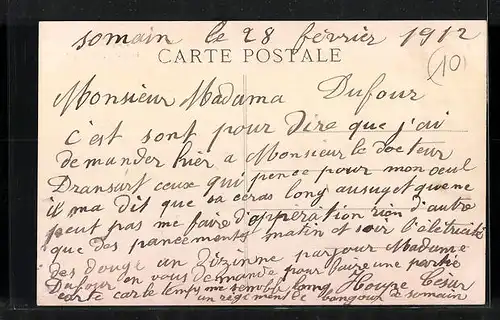 somain le 28 février 1912
CARTE POSTALE
10
Monsieur Madama Dufour
c'est sont pour dire que j'ai
demander hier a Monsieur le docteur
Dransart ceux qui pence pour mon oeul
il ma dit que sa ceras long ausuget que ne
peut pas me faire d'oppération rien d'autre
que des pancements matin et soir l'életricité
des douge an par jour Madame
Dufour on vous demande pour faire une partie
carte car le temps me semble long Houze César
un de bonjour de somain